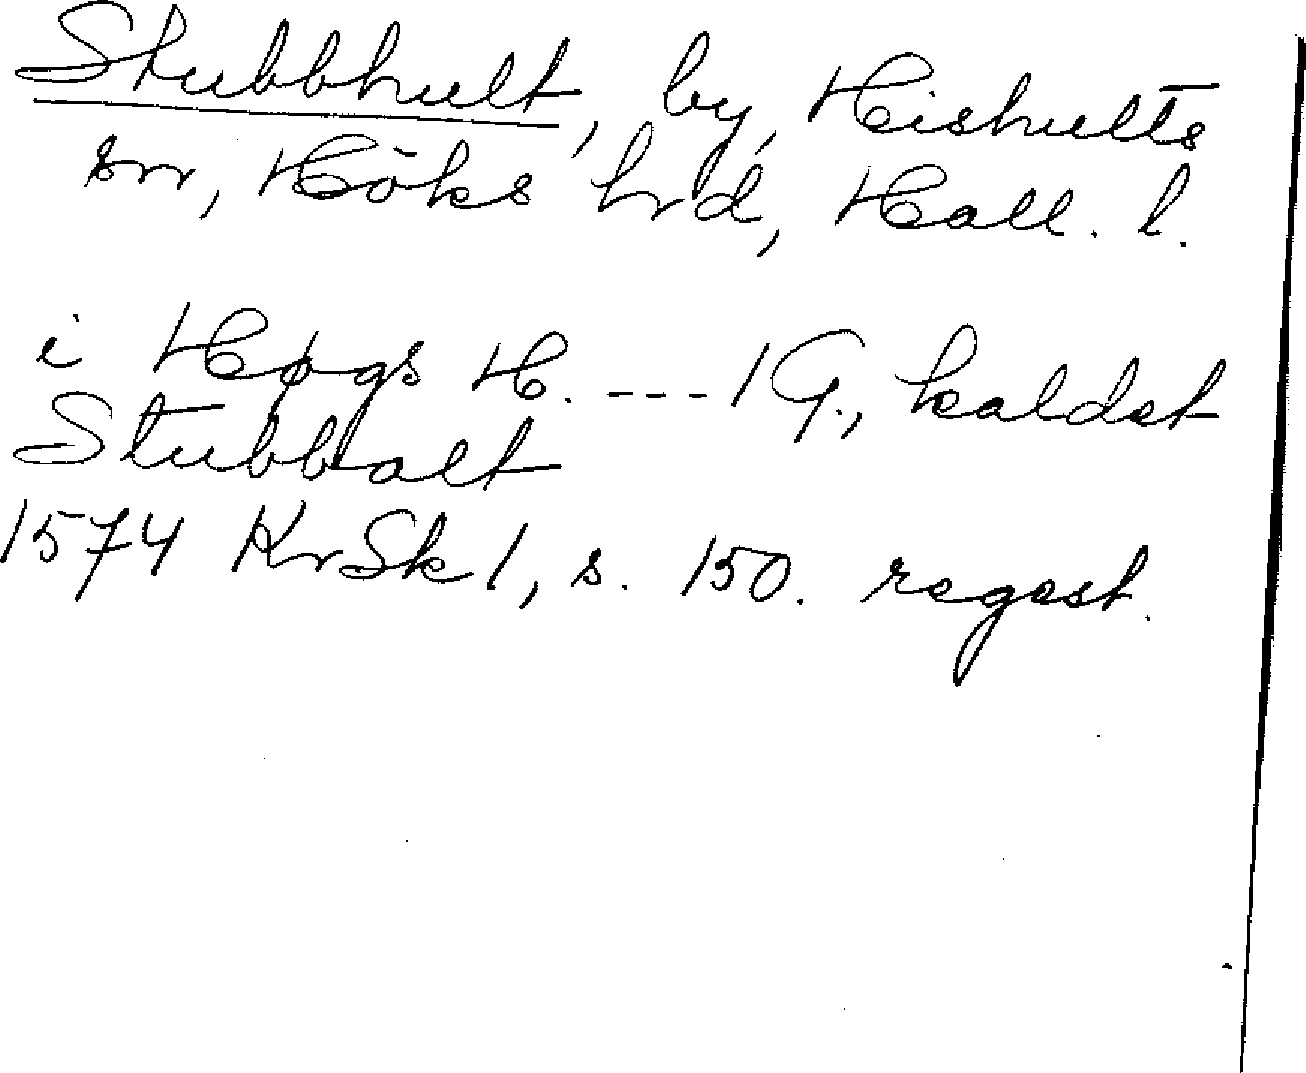 Stubbhult, by, Hishults
sn, Höks hrd, Hall. l.
i Høgs H. ---- 1 G., kaldet
Stubbalt
1574 KrSk 1, s. 150. regest.